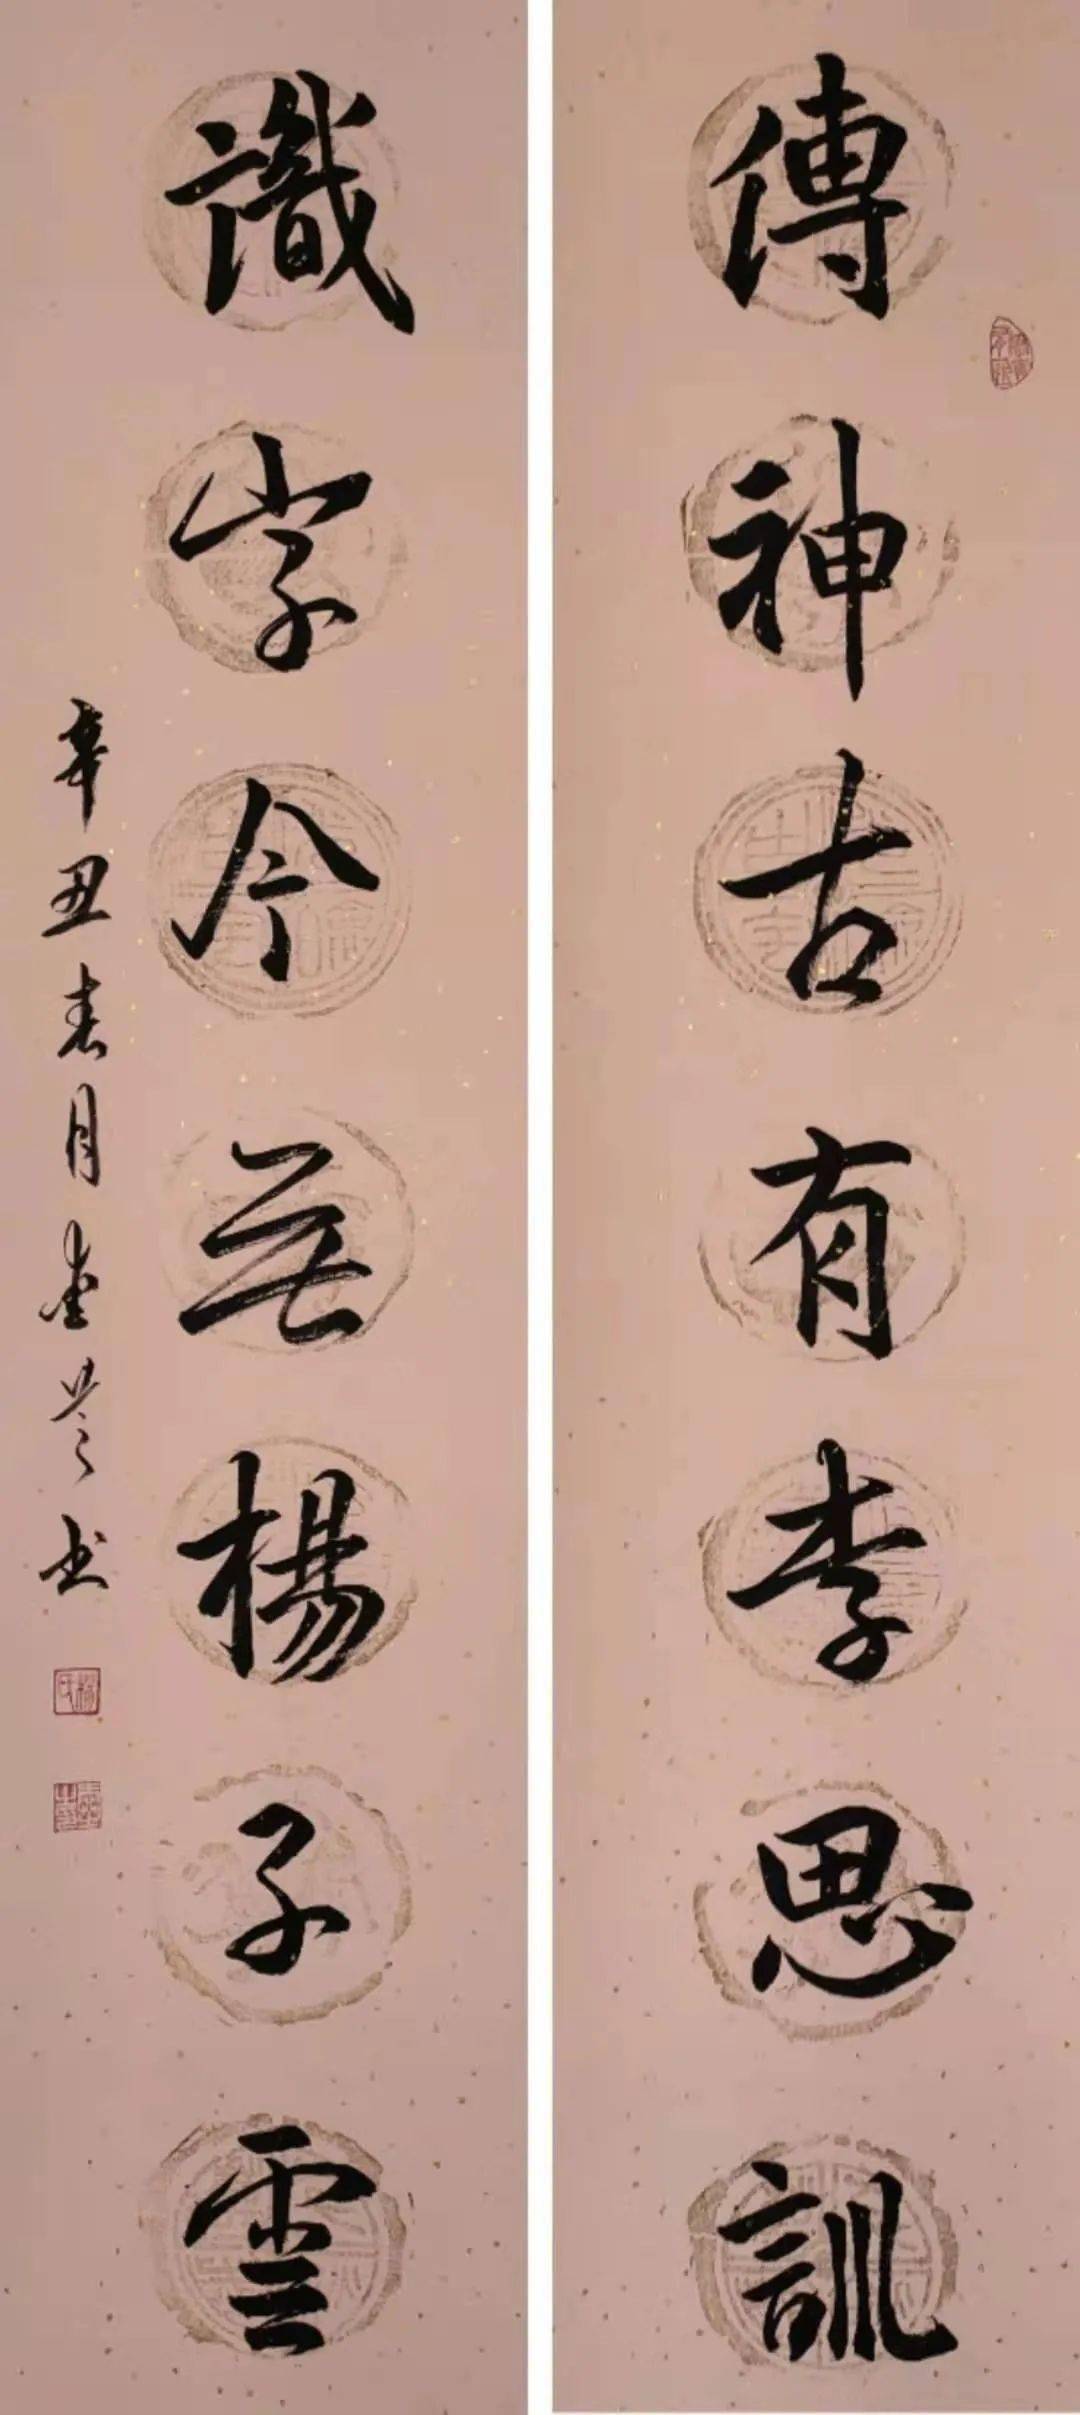 傳神古有李思訓
識字今無楊子雲
辛丑春月
书